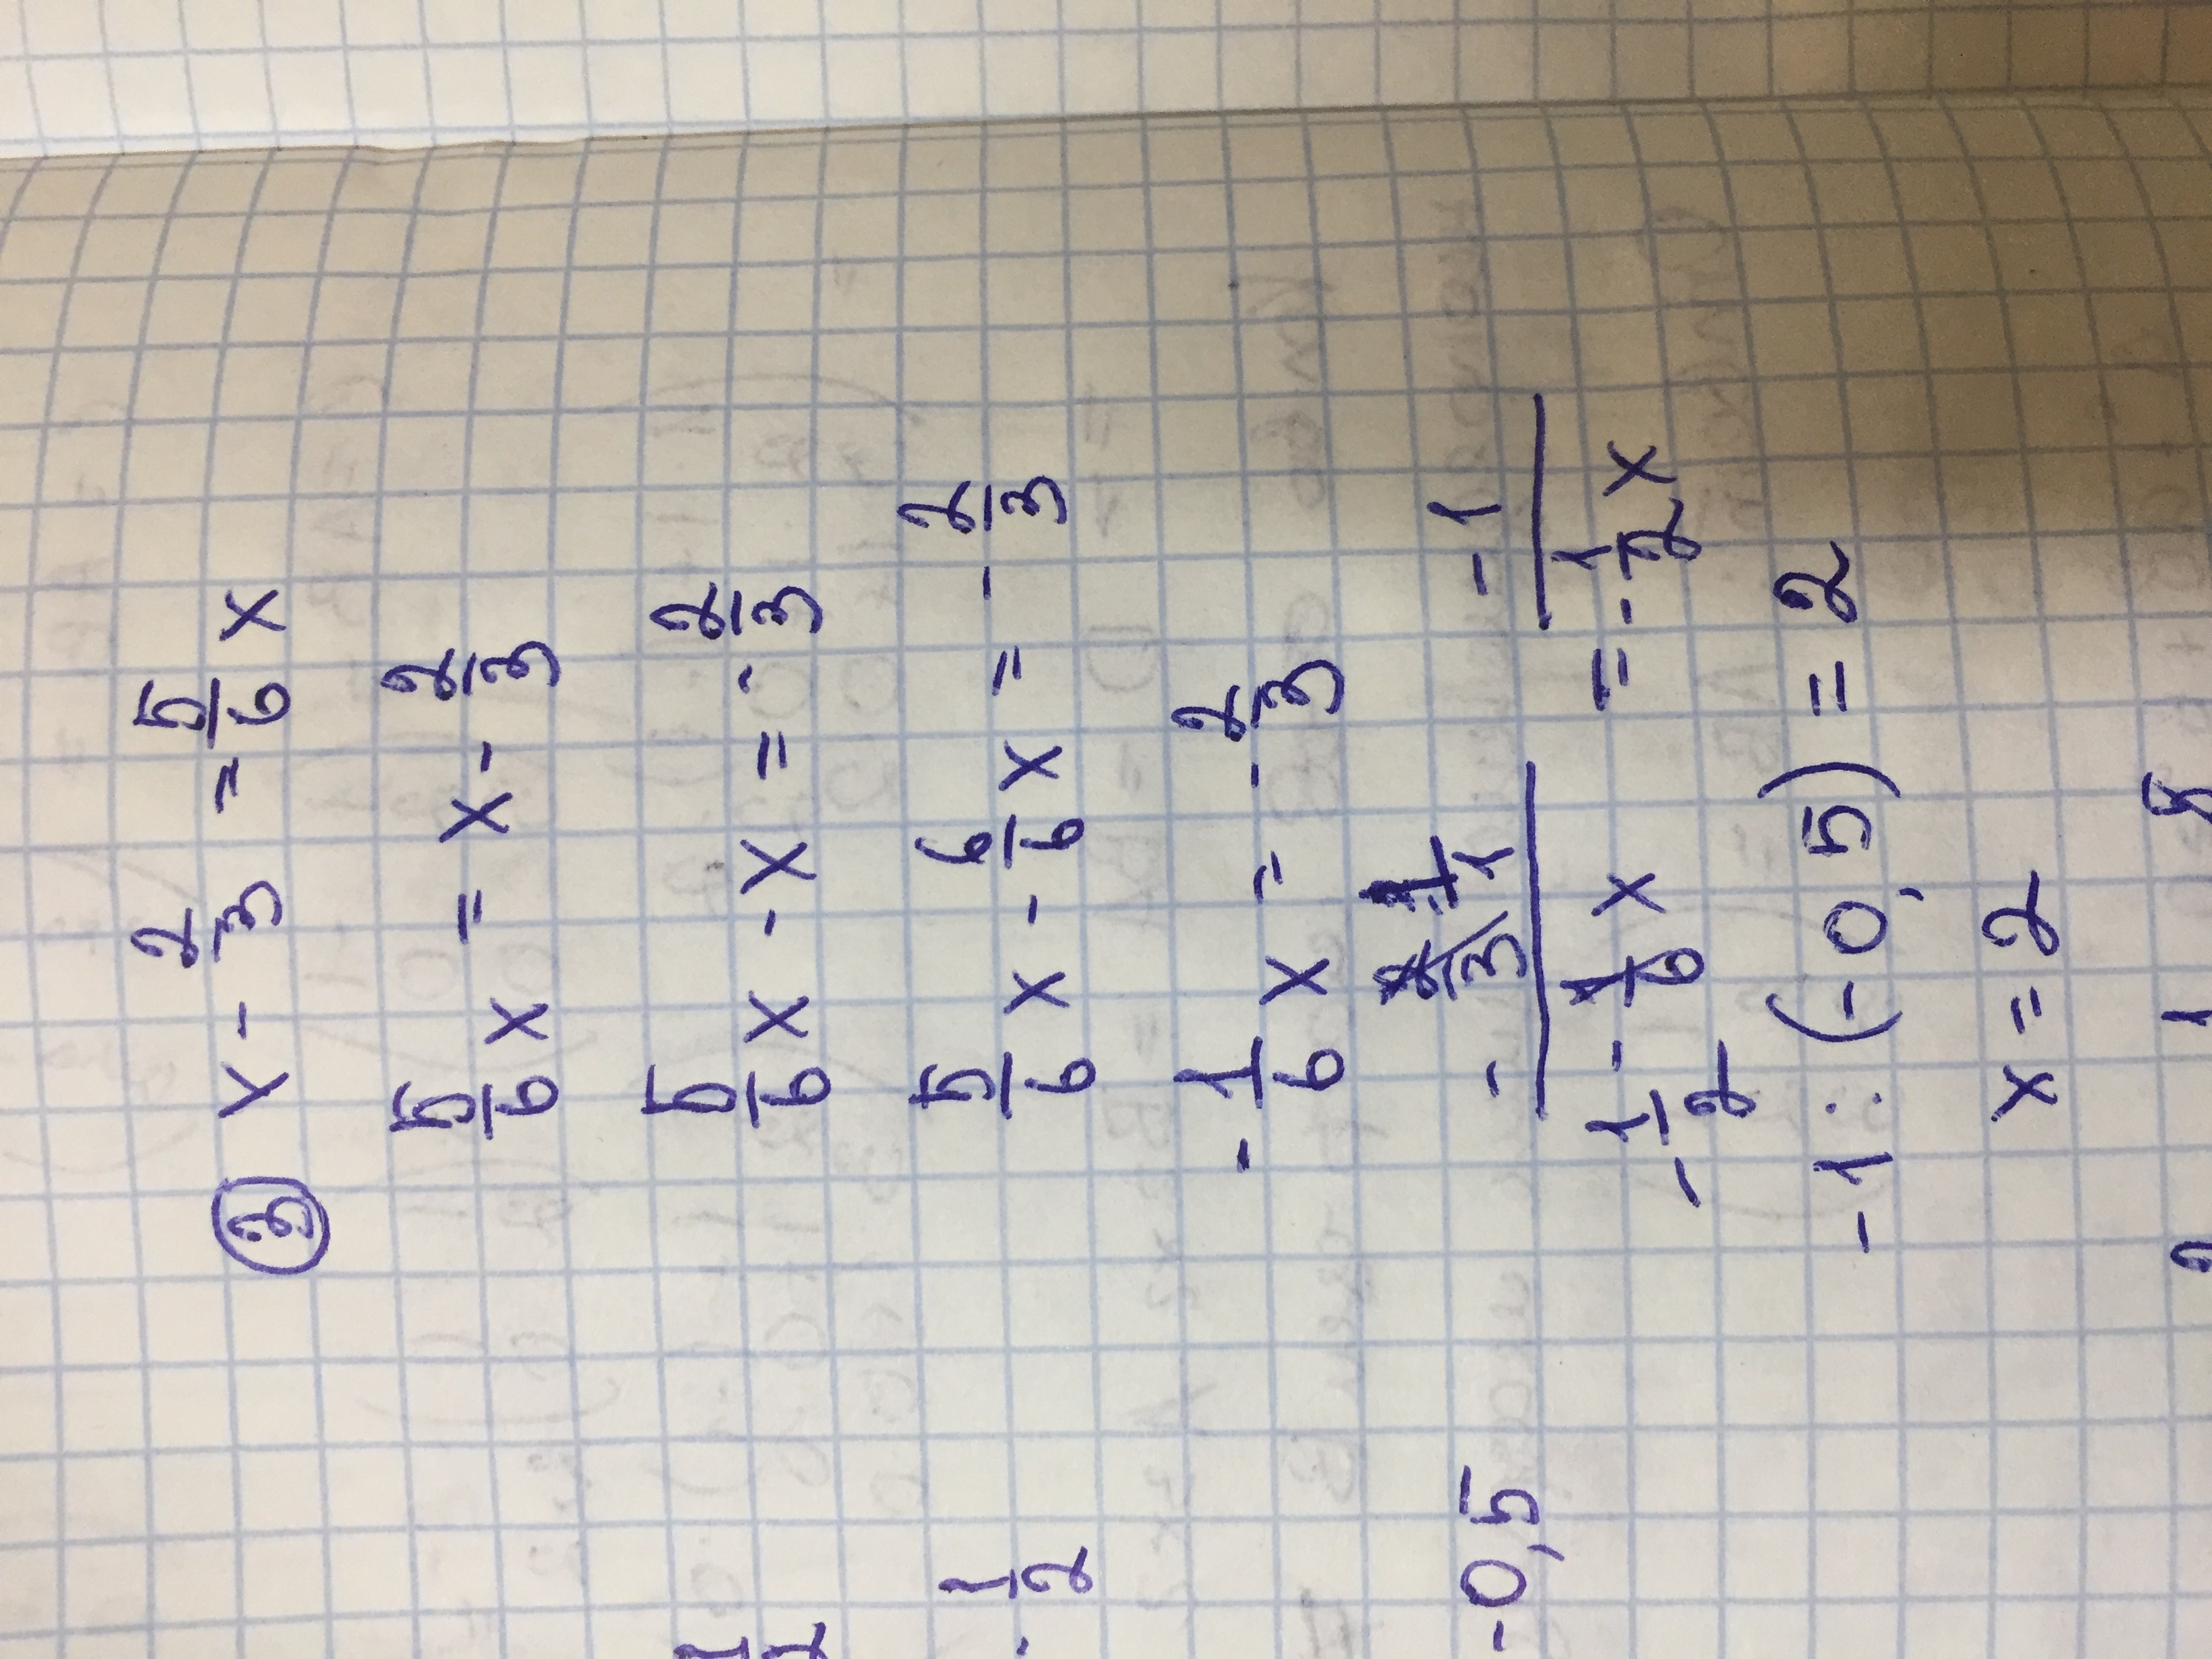 ③ x - 2/3 = 5/6 x
5/6 x = x - 2/3
5/6 x - x = - 2/3
5/6 x - 6/6 x = - 2/3
- 1/6 x = - 2/3
- 2/3 1 -1
- 1/2 - 1/6 x = - 1/2 x
-1 : (-0,5) = 2
x = 2
- 1/2
-0,5